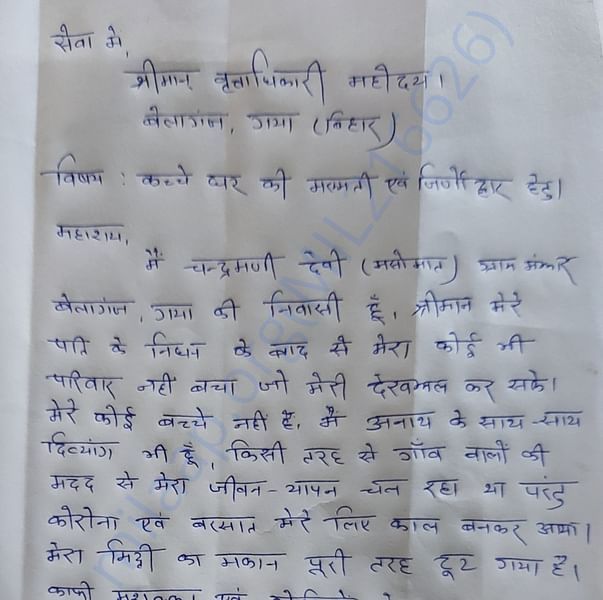 सेवा में,
श्रीमान वृताधिकारी महोदय।
बेलागंज, गया (बिहार)
विषय : कच्चे घर की मरम्मती एवं जिर्णोद्वार हेतु।
महाशय,
मैं चन्द्रमणी देवी (मसोमात) ग्राम
बेलागंज, गया की निवासी हूँ, श्रीमान मेरे
पति के निधन के बाद से मेरा कोई भी
परिवार नहीं बचा जो मेरी देखभाल कर सके।
मेरे कोई बच्चे नहीं है, मैं अनाथ के साथ-साथ
दिव्यांग भी हूँ, किसी तरह से गाँव वालों की
मदद से मेरा जीवन-यापन चल रहा था परंतु
कोरोना एवं बरसात मेरे लिए काल बनकर आया।
मेरा मिट्टी का मकान पूरी तरह टूट गया है।
काफी एवं